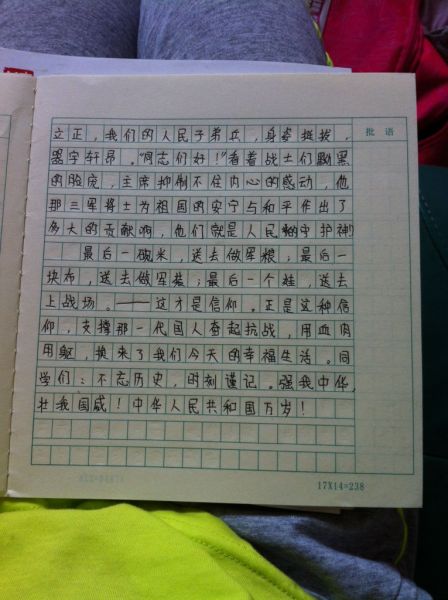 批语
立正，我们的人民子弟兵，身姿挺拔，
器宇轩昂。"同志们好！"看着战士们黝黑
的脸庞，主席抑制不住内心的感动，他
那三军将士为祖国的安宁与和平作出了
多大的贡献啊，他们就是人民的守护神！
最后一碗米，送去做军粮；最后一
块布，送去做军装；最后一个娃，送去
上战场。——这才是信仰。正是这种信
仰，支撑那一代国人奋起抗战，用血肉
用躯，换来了我们今天的幸福生活。同
学们：不忘历史，时刻谨记。强我中华，
壮我国威！中华人民共和国万岁！
17X14=238